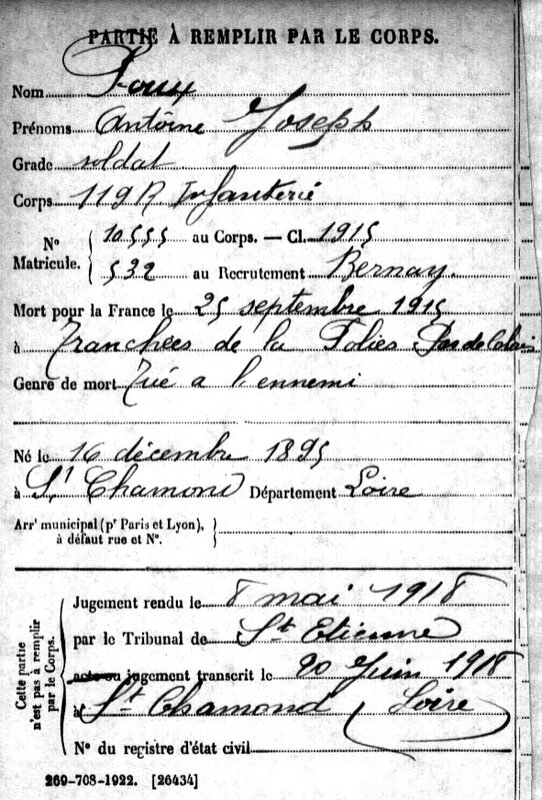 PARTIE À REMPLIR PAR LE CORPS.
Nom
Prénoms Antoine Joseph
Grade soldat
Corps 119 R Infanterie
N° Matricule. 10555 au Corps. — Cl. 1915
532 au Recrutement Bernay.
Mort pour la France le 25 septembre 1915
à Tranchées de la Folies Pas de Calais
Genre de mort Tué a l'ennemi
Né le 16 décembre 1895
à St Chamond Département Loire
Arr' municipal (pr Paris et Lyon),
à défaut rue et N°.
Cette partie
n'est pas à remplir
par le Corps.
Jugement rendu le 8 mai 1918
par le Tribunal de St Etienne
acte ou jugement transcrit le 20 Juin 1918
à St Chamond (Loire)
N° du registre d'état civil
269-708-1922. [26434]